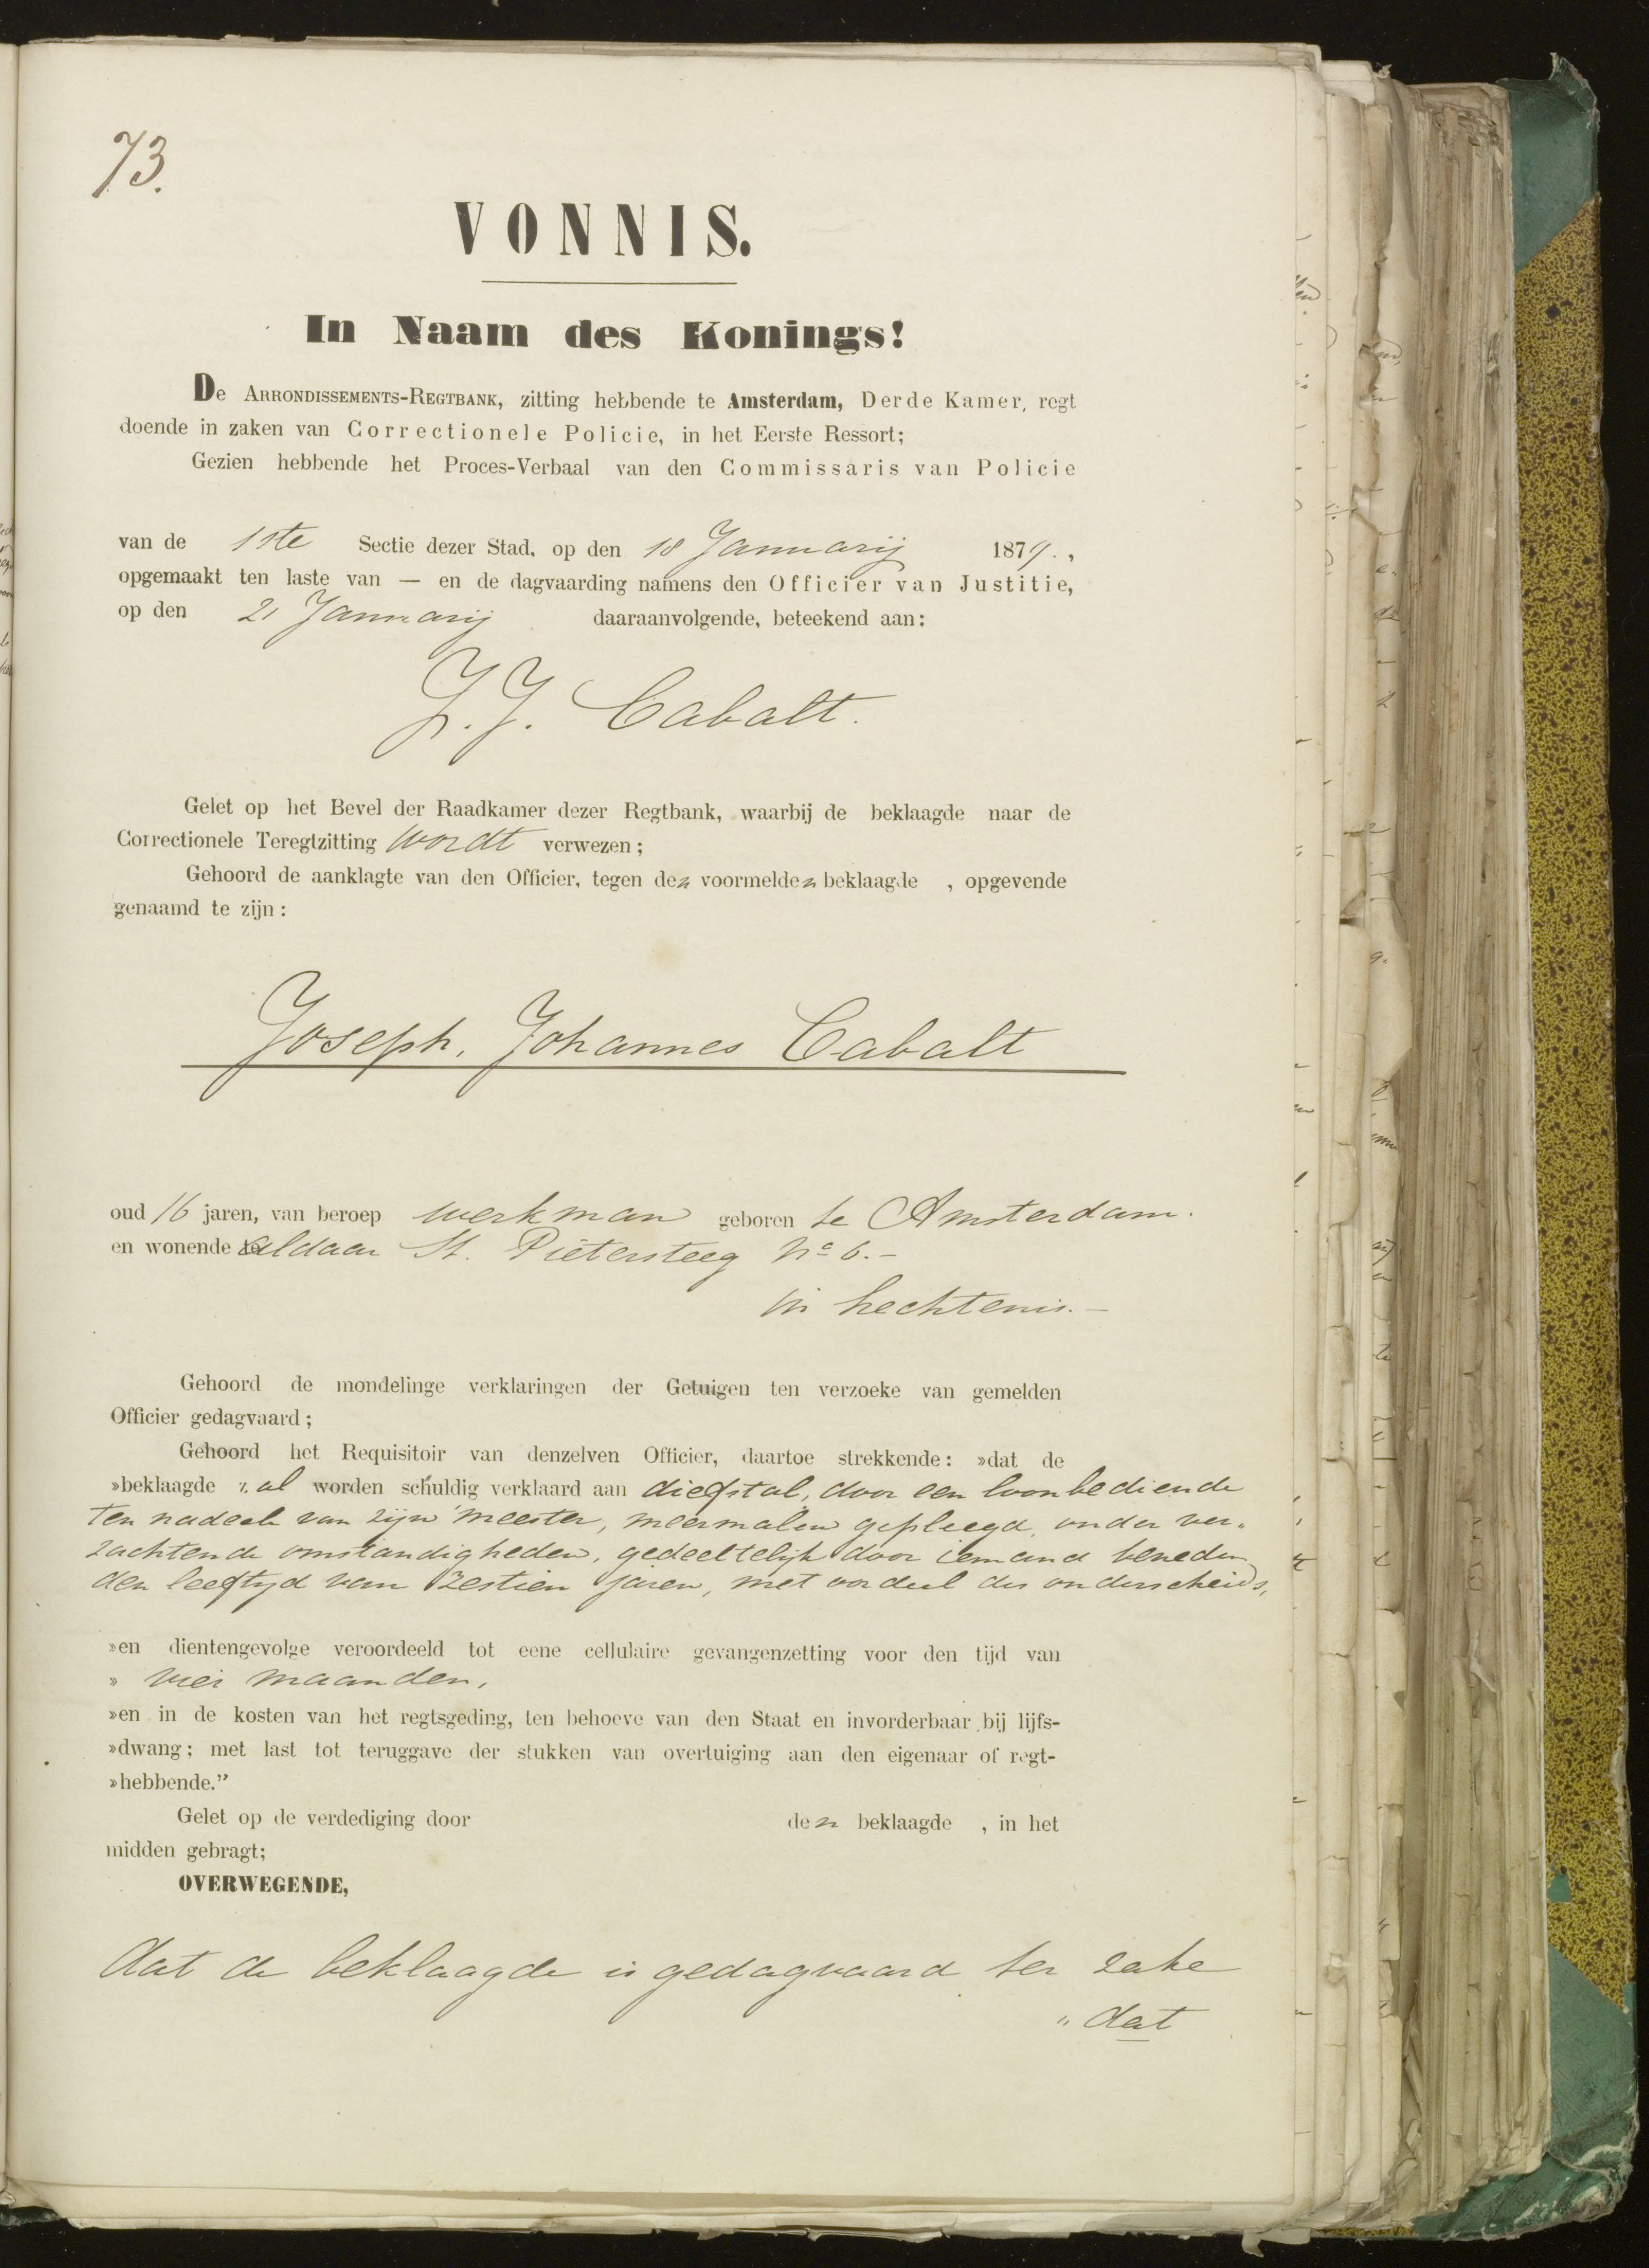 73.
VONNIS.
In Naam des Konings!
De Arrondissements-Regtbank, zitting hebbende te Amsterdam, Derde Kamer, regt
doende in zaken van Correctionele Policie, in het Eerste Ressort;
Gezien hebbende het Proces-Verbaal van den Commissaris van Policie
van de 1ste Sectie dezer Stad, op den 18 Januarij 1879.,
opgemaakt ten laste van — en de dagvaarding namens den Officier van Justitie,
op den 21 Januarij daaraanvolgende, beteekend aan:
J. J. Cabalt.
Gelet op het Bevel der Raadkamer dezer Regtbank, waarbij de beklaagde naar de
Correctionele Teregtzitting wordt verwezen;
Gehoord de aanklagte van den Officier, tegen den voormelden beklaagde , opgevende
genaamd te zijn:
Joseph, Johannes Cabalt
oud 16 jaren, van beroep werkman geboren te Amsterdam.
en wonende aldaar St. Pietersteeg No 6.-
in hechtenis.-
Gehoord de mondelinge verklaringen der Getuigen ten verzoeke van gemelden
Officier gedagvaard;
Gehoord het Requisitoir van denzelven Officier, daartoe strekkende: »dat de
»beklaagde zal worden schuldig verklaard aan diefstal, door een loonbediende
ten nadeele van zijn meester, meermalen gepleegd, onder ver„
zachtende omstandigheden, gedeeltelijk door iemand beneden
den leeftyd van zestien jaren, met oordeel des onderscheids,
»en dientengevolge veroordeeld tot eene cellulaire gevangenzetting voor den tijd van
» vier maanden,
»en in de kosten van het regtsgeding, ten behoeve van den Staat en invorderbaar bij lijfs-
»dwang; met last tot teruggave der stukken van overtuiging aan den eigenaar of regt-
»hebbende.”
Gelet op de verdediging door den beklaagde , in het
midden gebragt;
OVERWEGENDE,
dat de beklaagde is gedagvaard ter zake
„ dat